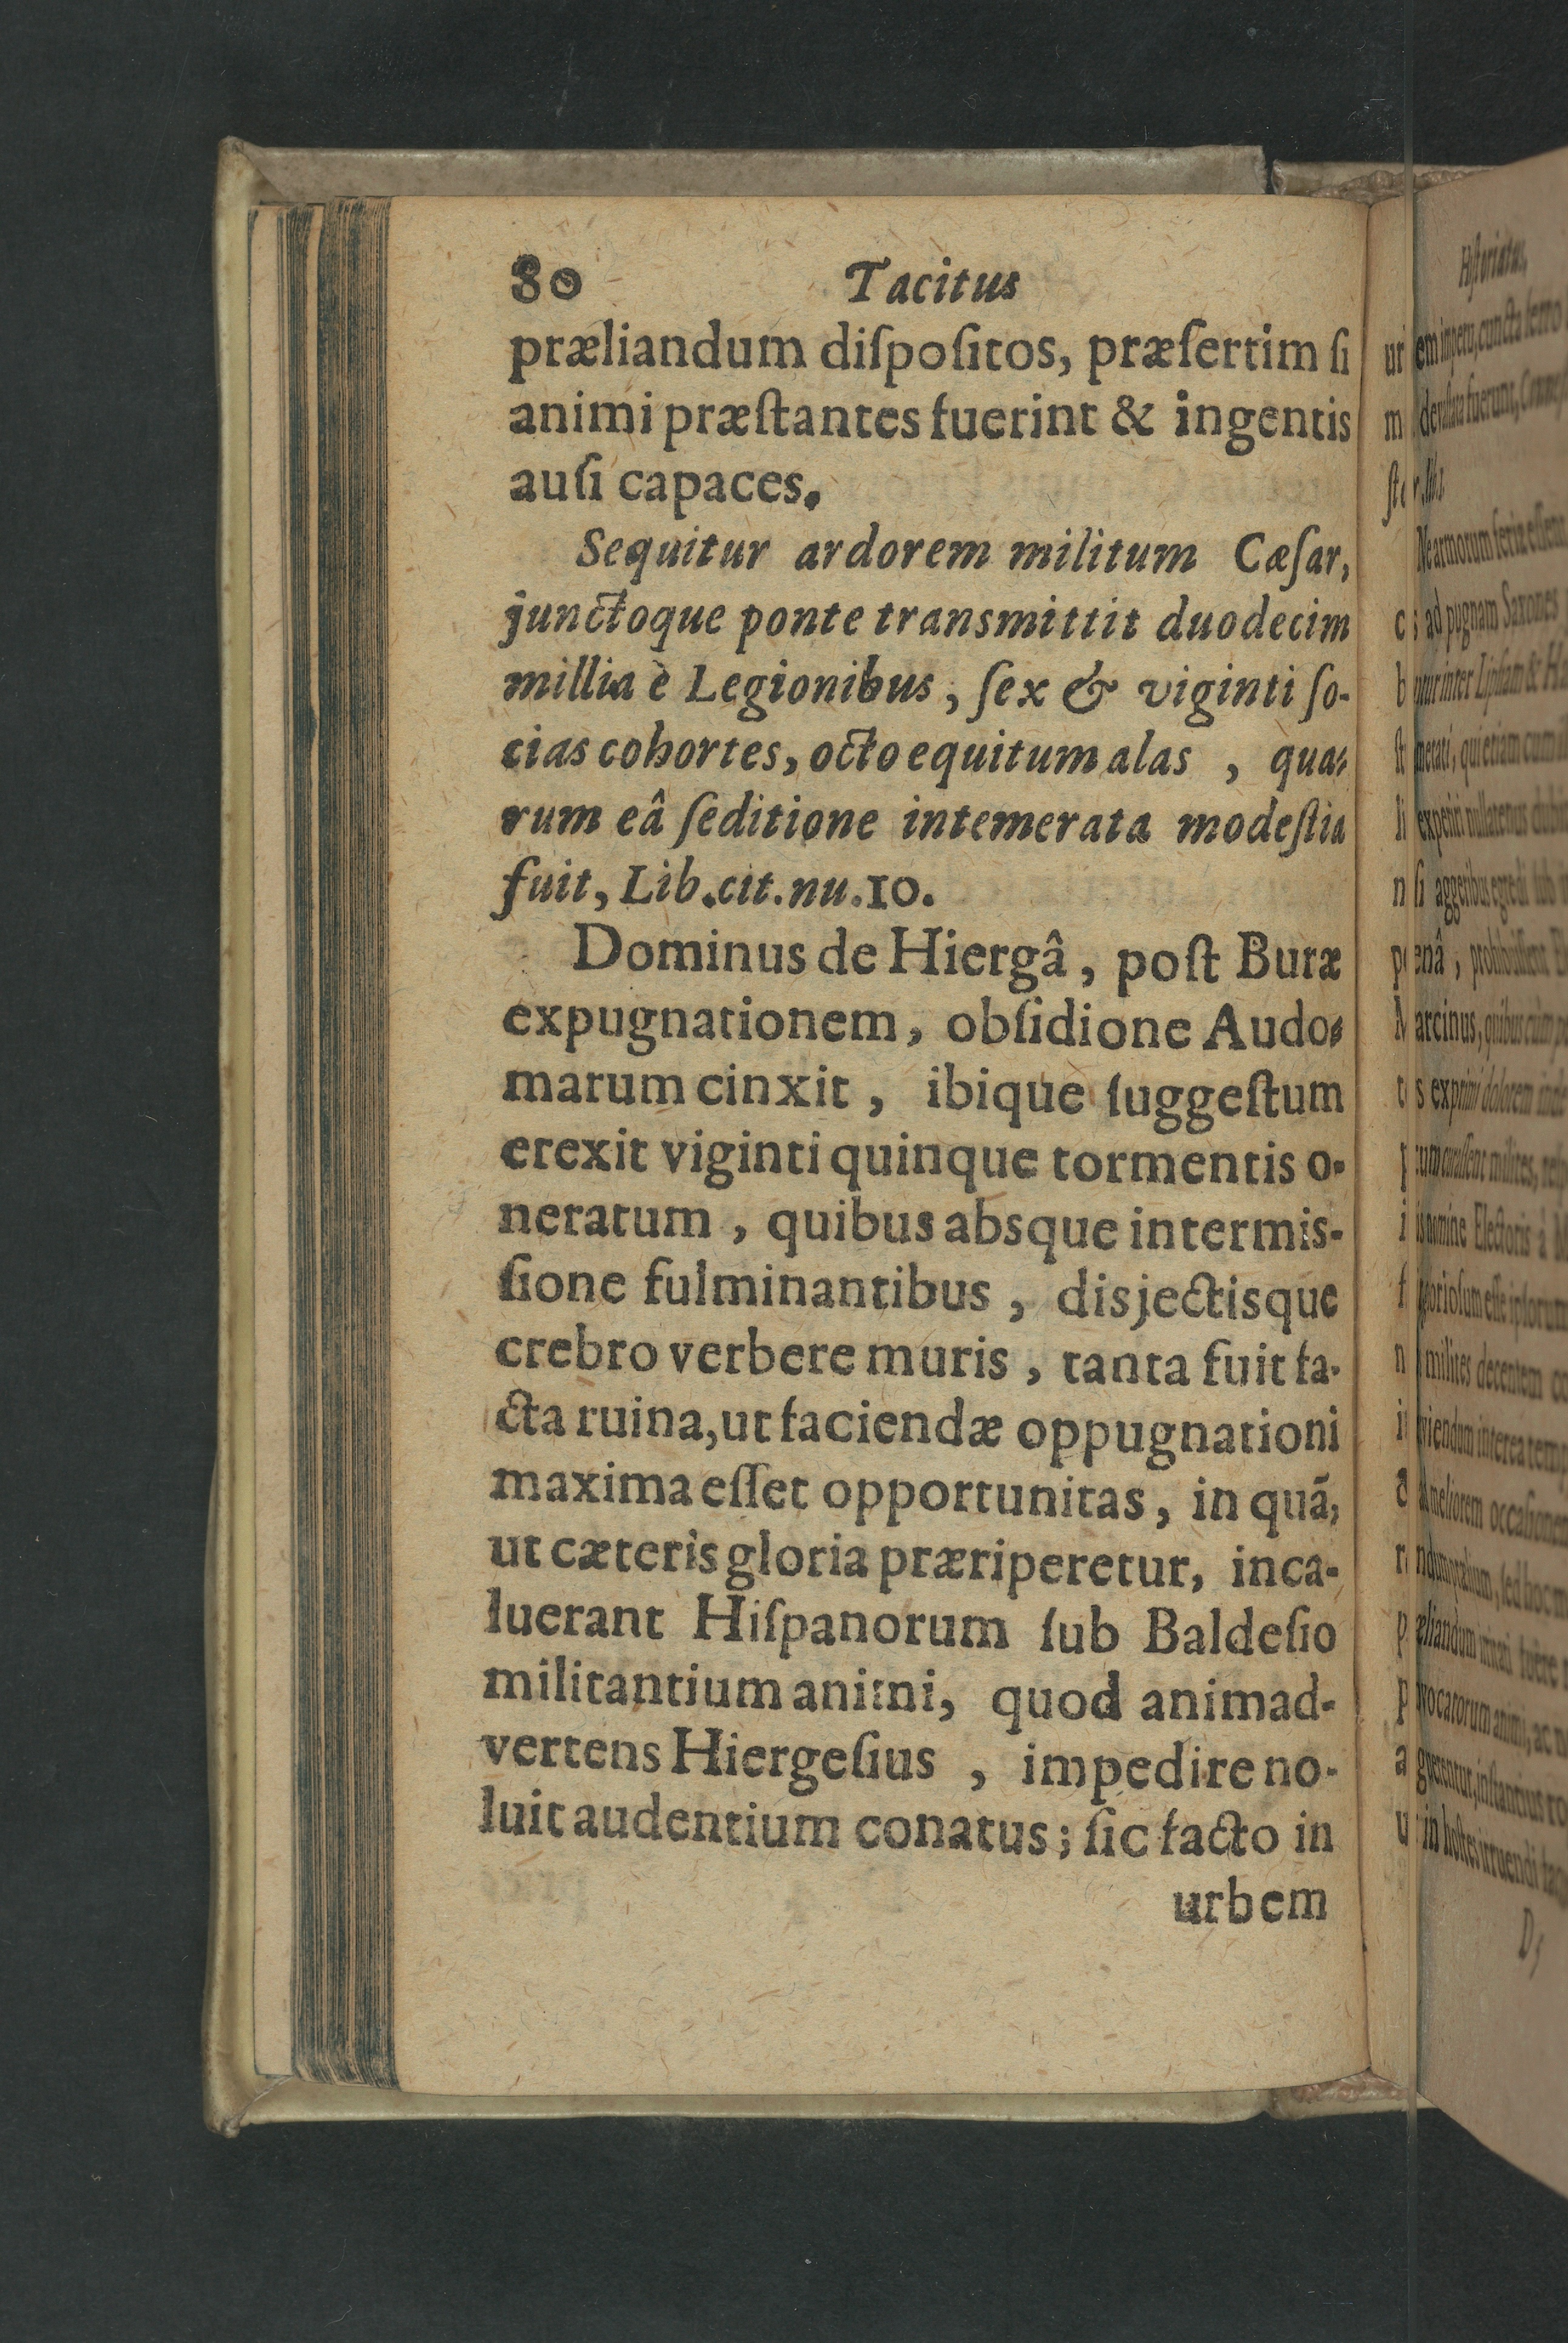 80 Tacitus
præliandum diſpoſitos, præſertim ſi
animi præſtantes fuerint & ingentis
auſi capaces.
Sequitur ardorem militum Cæſar,
junctoque ponte transmittit duodecim
millia è Legionibus, ſex & viginti ſo-
cias cohortes, octo equitum alas, qua-
rum eâ ſeditione intemerata modeſtia
fuit, Lib. cit. nu. 10.
Dominus de Hiergâ, poſt Buræ
expugnationem, obſidione Audo-
marum cinxit, ibique ſuggeſtum
erexit viginti quinque tormentis o-
neratum, quibus absque intermis-
ſione fulminantibus, disjectisque
crebro verbere muris, tanta fuit fa-
cta ruina, ut faciendæ oppugnationi
maxima eſſet opportunitas, in quã,
ut cæteris gloria præriperetur, inca-
luerant Hiſpanorum ſub Baldeſio
militantium animi, quod animad-
vertens Hiergeſius, impedire no-
luit audentium conatus; ſic facto in
urbem